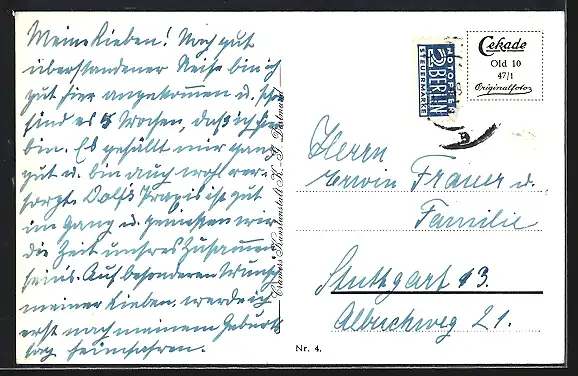 Meine Lieben! Nach gut
überstandener Reise bin ich
gut hier angekommen u. schon
sind es 5 Wochen, daß ich hier
bin. Es gefällt mir ganz
gut u. bin auch wohl ver-
sorgt. Dolfs Praxis ist gut
im Gang u. geniessen wir
die Zeit unsres Zusammen-
seins. Auf besonderen Wunsch
meiner Lieben, werde ich
erst nach meinem Geburts-
tag heimfahren.
Cramers Kunstanstalt K.-G. Dortmund
NOTOPFER
2 BERLIN
STEUERMARKE
Cekade
Old 10
47/1
Originalfotos
Herrn
Erwin Frauer u.
Familie
Stuttgart 13.
Albuchweg 21.
Nr. 4.